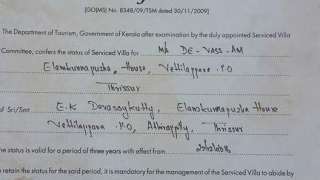 [GO(MS) No. 8348/09/TSM dated 30/11/2009]
The Department of Tourism, Government of Kerala after examination by the duly appointed Serviced Villa
Committee, confers the status of Serviced Villa for MA DE-VASS-AM
Elamkunnapuzha House, Vettilappara .P.O
Thrissur
of Sri/Smt. E.K Devasaykutty, Elamkunnapuzha House
Vettilappara .P.O, Athirappilly, Thrissur
The status is valid for a period of three years with effect from
to retain the status for the said period, it is mandatory for the management of the Serviced Villa to abide by